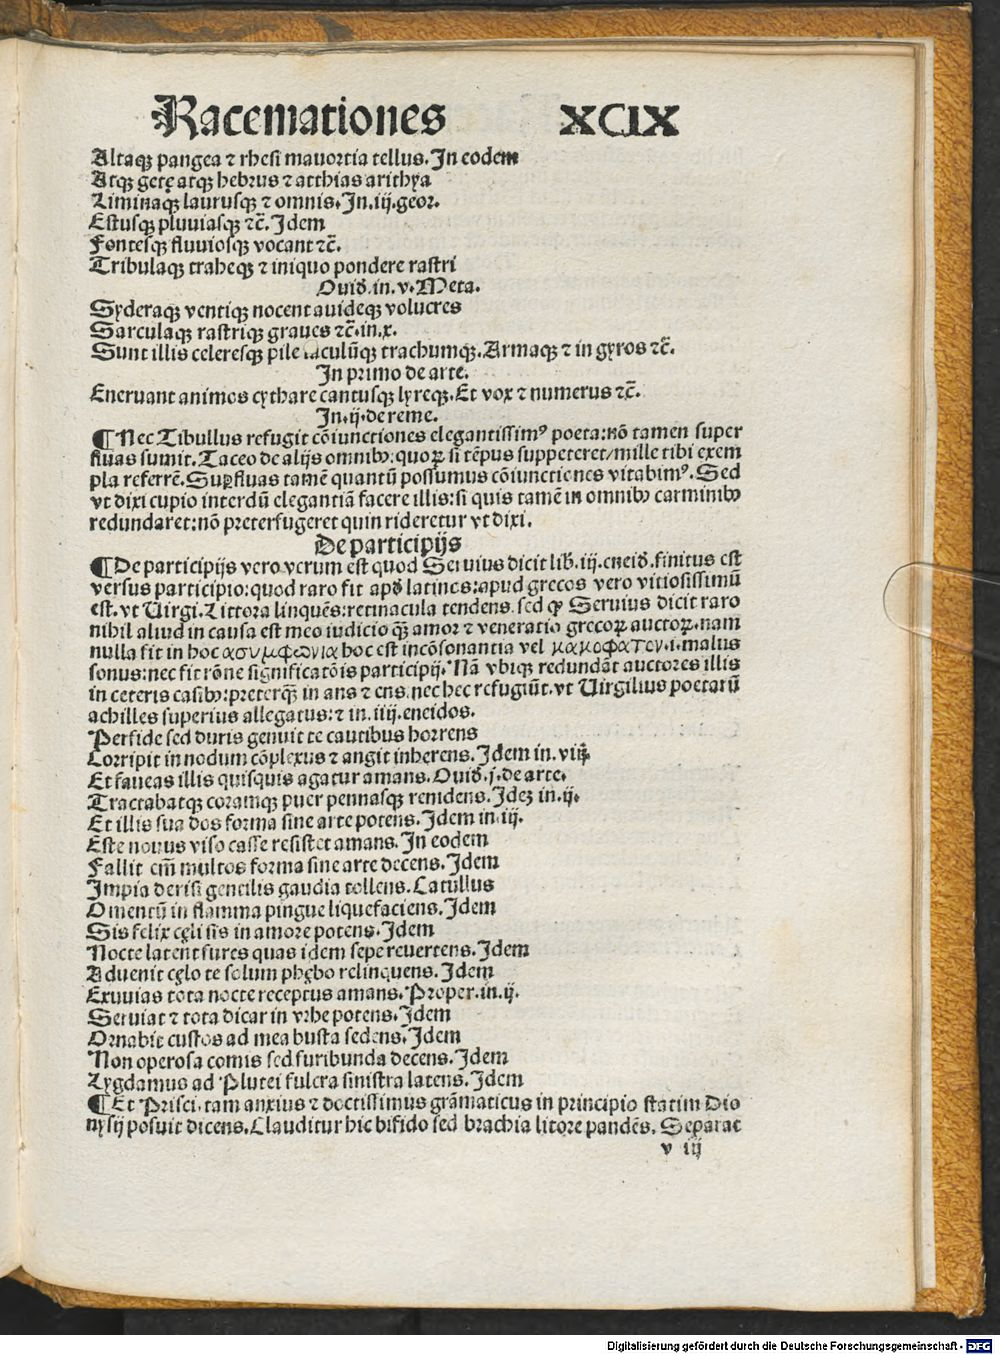 Racemationes XCIX
Altaqꝫ pangea ⁊ rhesi mauortia tellus. In eodem
Atqꝫ getę atqꝫ hebrus ⁊ atthias arithya
Liminaqꝫ laurusqꝫ ⁊ omnis. In .iij. geor.
Estusqꝫ pluuiasqꝫ ⁊c̄. Idem
Fontesqꝫ fluuiosqꝫ vocant ⁊c̄.
Tribulaqꝫ traheqꝫ ⁊ iniquo pondere rastri
Ouid̛. in. v. Meta.
Syderaqꝫ ventiqꝫ nocent auideqꝫ volucres
Sarculaqꝫ rastriqꝫ graues ⁊c̄. in. x.
Sunt illis celeresqꝫ pile iaculūqꝫ trachumqꝫ. Armaqꝫ ⁊ in gyros ⁊c̄.
In primo de arte.
Eneruant animos cythare cantusqꝫ lyreqꝫ. Et vox ⁊ numerus ⁊c̄.
In .ij. de reme.
¶ Nec Tibullus refugit cōiunctiones elegantissimꝰ poeta: nō tamen super
fluas sumit. Taceo de alijs omnibꝫ: quoꝝ si tēpus suppeteret/ mille tibi exem
pla referrē. Suꝑfluas tamē quantū possumus cōiunctiones vitabimꝰ. Sed
vt dixi cupio interdū elegantiā facere illis: si quis tamē in omnibꝫ carminibꝫ
redundaret: nō preterfugeret quin rideretur vt dixi.
De participijs
¶ De participijs vero verum est quod Seruius dicit lib̛. iij. eneid̛. finitus est
versus participio: quod raro fit apd̛ latinos: apud grecos vero vitiosissimū
est. vt Uirgi. Littora linquēs: retinacula tendens. sed qꝫ Seruius dicit raro
nihil aliud in causa est meo iudicio qꝫ̄ amor ⁊ veneratio grecoꝝ auctoꝝ. nam
nulla fit in hoc ασυμφωνια hoc est incōsonantia vel κακοφατον .i. malus
sonus: nec fit rōne significatōis participij. Nā vbiqꝫ redundāt auctores illis
in ceteris casibꝫ: preterqꝫ̄ in ans ⁊ ens. nec hec refugiūt. vt Uirgilius poetarū
achilles superius allegatus: ⁊ in. iiij. eneidos.
Perfide sed duris genuit te cautibus horrens
Corripit in nodum cōplexus ⁊ angit inherens. Idem in. viij.
Et faueas illis quisquis agatur amans. Ouid̛. j. de arte.
Tractabatqꝫ coramqꝫ puer pennasqꝫ renidens. Ideꝫ in. ij.
Et illis sua dos forma sine arte potens. Idem in. iij.
Este nouus viso casse resistet amans. In eodem
Fallit em̄ multos forma sine arte decens. Idem
Impia derisi gentilis gaudia tollens. Catullus
Omentū in flamma pingue liquefaciens. Idem
Sis felix cęli sīs in amore potens. Idem
Nocte latent fures quas idem sepe reuertens. Idem
Aduenit cęlo te solum phębo relinquens. Idem
Exuuias tota nocte receptus amans. Proper. in. ij.
Seruiat ⁊ tota dicar in vrbe potens. Idem
Ornabit custos ad mea busta sedens. Idem
Non operosa comis sed furibunda decens. Idem
Lygdamus ad Plutei fulcra sinistra latens. Idem
¶ Et Prisci. tam anxius ⁊ doctissimus grāmaticus in principio statim Dio
nysij posuit dicens. Clauditur hic bifido sed brachia litore pandēs. Separat
v iij
Digitalisierung gefördert durch die Deutsche Forschungsgemeinschaft - DFG